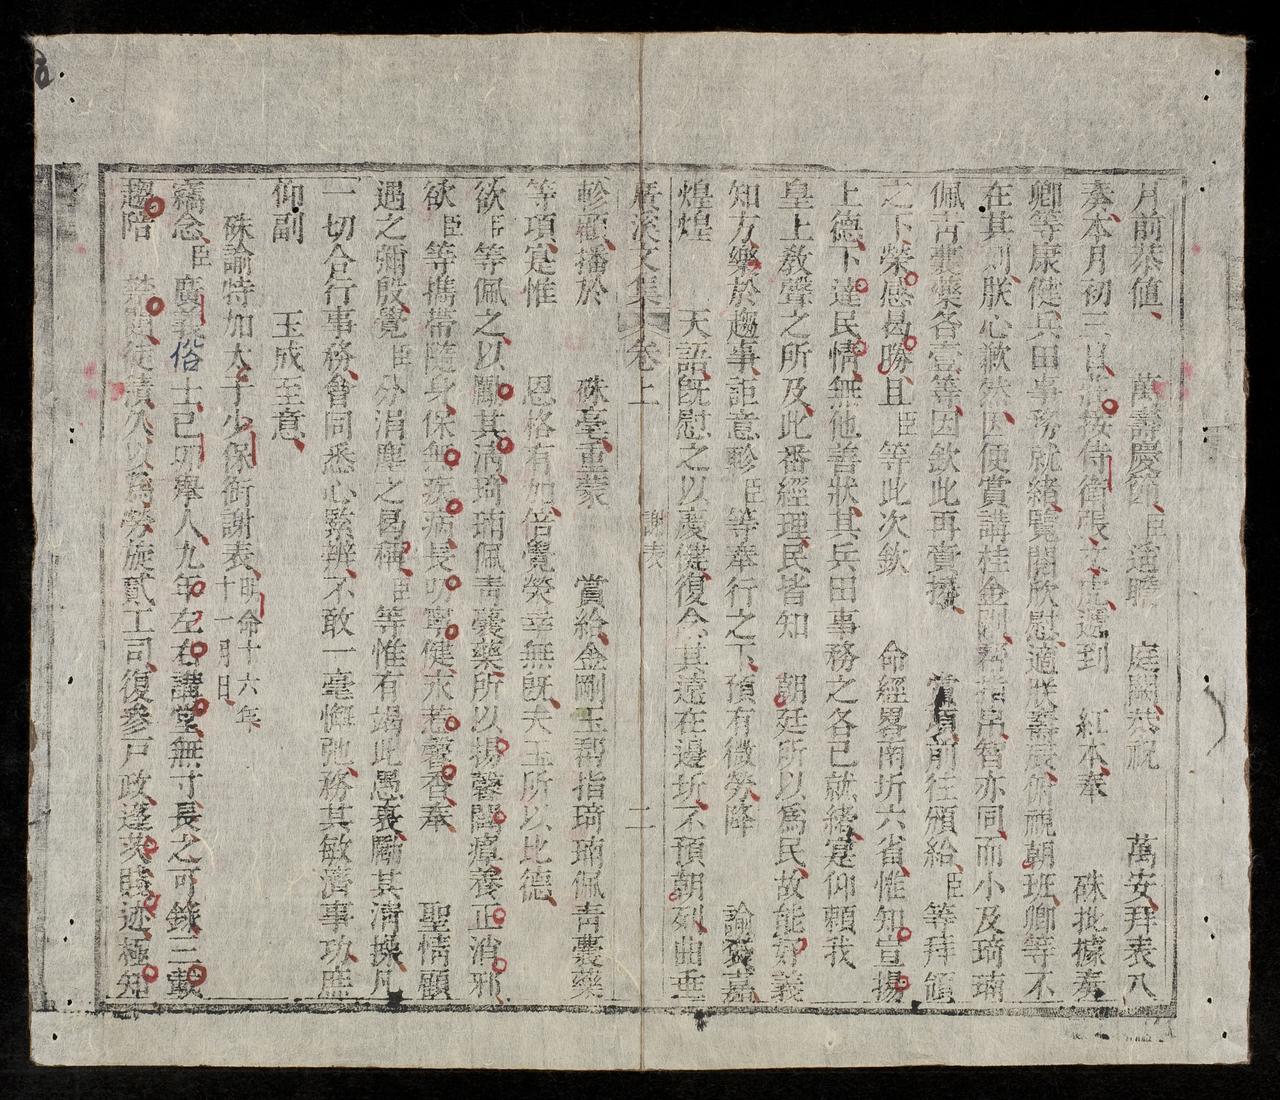 月前恭值 萬壽慶節臣遙瞻 庭闕恭祝 萬安拜表八
奏本月初三日 接侍衛張 虎遞到 紅本奉 硃批據奏
卿等康健兵田事務就緒覽閱欣慰適朕壽辰俯視朝班卿等不
在其列朕心歉然因使賞講桂金剛 指帛智亦同而小及琦瑀
佩青囊藥各壹等因欽此再賚撥 賞項前往頒給臣等拜領
之下榮感曷勝且臣等此次欽 命經畧南圻六省惟知宣揚
上德下達民情無他善狀其兵田事務之各已就緒寔仰賴我
皇上敎聲之所及此番經理民皆知 朝廷所以爲民故能好義
知方樂於趨事詎意聆臣等奉行之下預有微勞降 諭獎嘉
煌煌 天語旣慰之以慶健復念其遠在邊圻不預朝列曲垂
廣溪文集 卷上 謝表 二
軫顧播於 硃毫重蒙 賞給金剛玉鄀指琦瑀佩青囊藥
等項寔惟 恩格有加倍覺榮幸無旣夫玉所以比德
欲臣等佩之以勵其 琦瑀佩靑囊藥所以揚馨闢瘴養正消邪
欲臣等攜帶隨身保無疾病長叨寧健永荵馨香奉 聖情顧
遇之彌殷覺臣分涓塵之曷稱臣等惟有竭此愚衷勵其淸操凡
一切合行事務會同悉心緊辨不敢一毫懈弛務其敏濟事功庶
仰副 玉成至意
硃諭特加太子少保銜謝表明命十六年十一月日
竊念臣廣義俗士己卯舉人九年左右講堂無寸長之可錄三載
趨陪 禁闥徒 久以爲勞旋貳工司復參戶政逢 迹極知